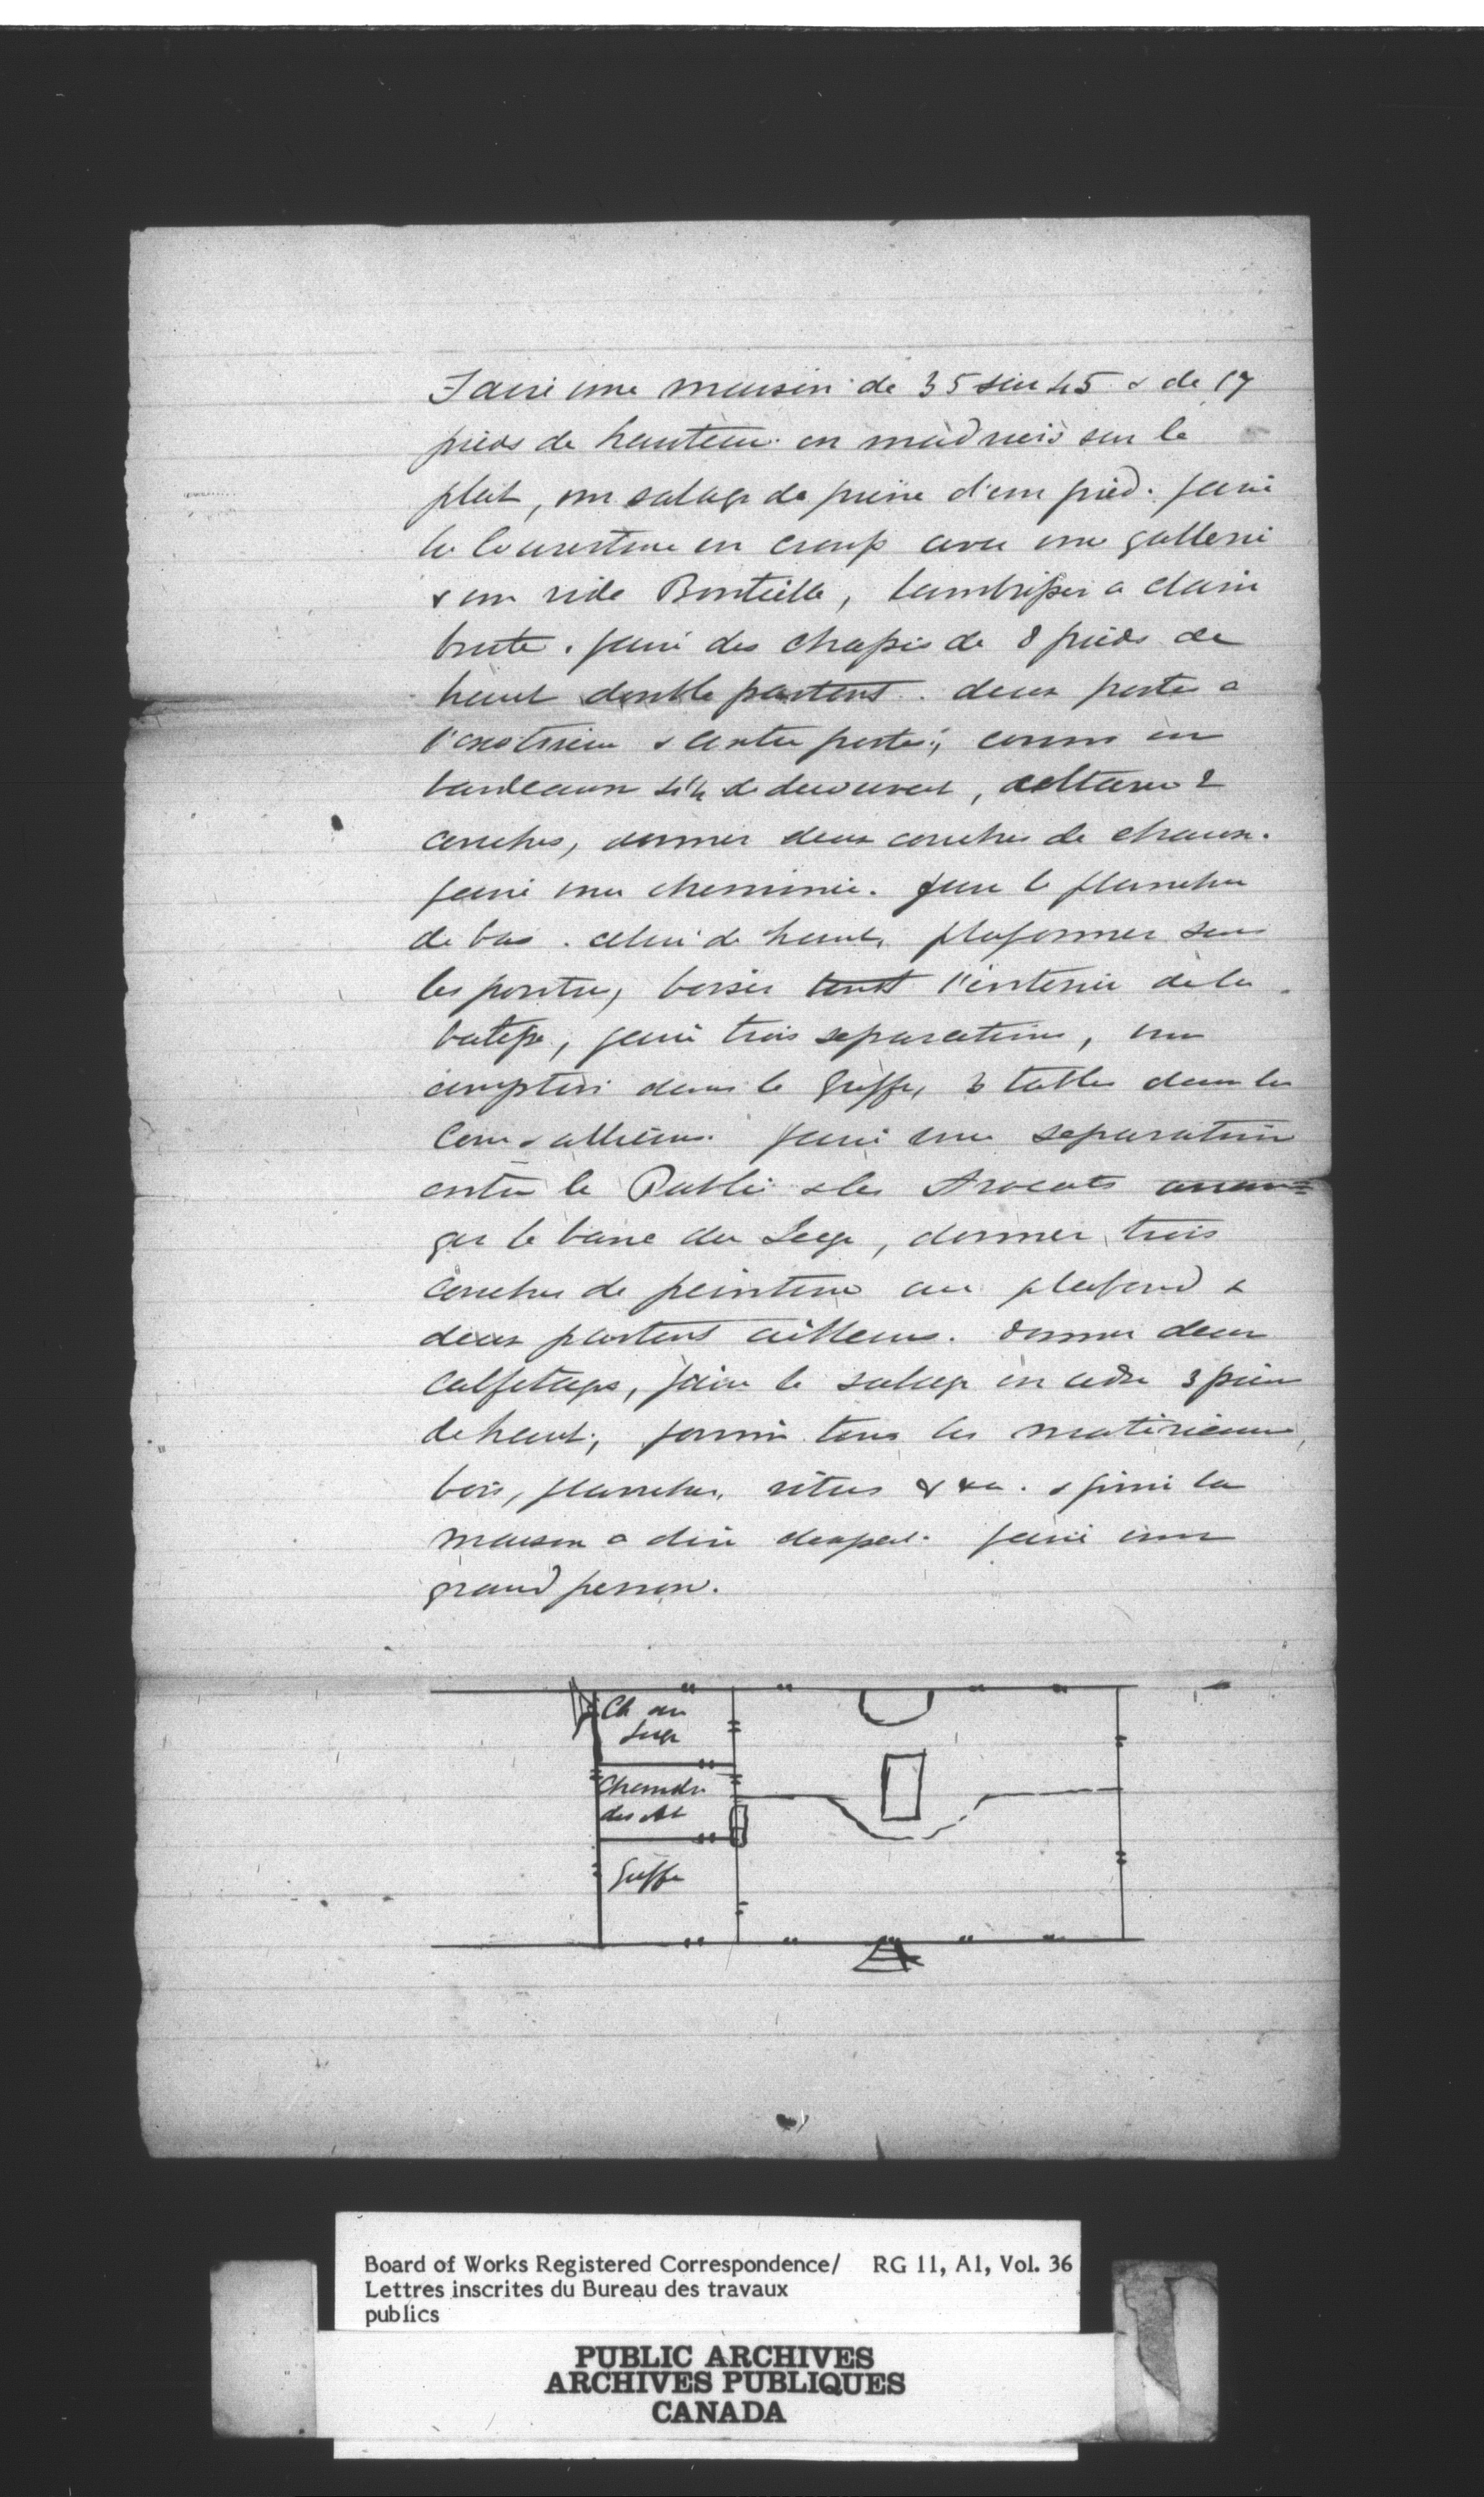 Faire une maison de 35 sur 45 & de 17
pieds de hauteur en madriers sur le
plat, un solage de pierre d'un pied. faire
la Couverture en croup avec une gallerie
& un vide Bouteille, lambrisser a clain
brute. faire des chassis de 8 pieds de
haut double partout. deux portes a
l'exterieur & contre portes; couvrir en
bardeaux de decouvert, 2
couches, donner deux couches de chaux.
faire une cheminée. faire le plancher
de bas. celui de haut, plafonner sous
les poutres, boiser tout l'interieur de la
batisse, faire trois separations, un
comptoir dans le Greffe, 3 tables dans les
Cour & ailleurs. faire une separation
entre le Public & les Avocats arran=
ger le banc du Juge, donner trois
couches de peinture au plafond &
deux partout ailleurs. donner deux
calfetages, faire le solage en cedre 3 pieds
de haut; fournir tous les materieaux,
bois, planches, vitres & &a. & finir la
maison a dire d'expert. faire un
grand perron.
Ch du
Juge
Chambre
des Av
Greffe
Board of Works Registered Correspondence/ RG 11, A1, Vol. 36
Lettres inscrites du Bureau des travaux
publics
PUBLIC ARCHIVES
ARCHIVES PUBLIQUES
CANADA